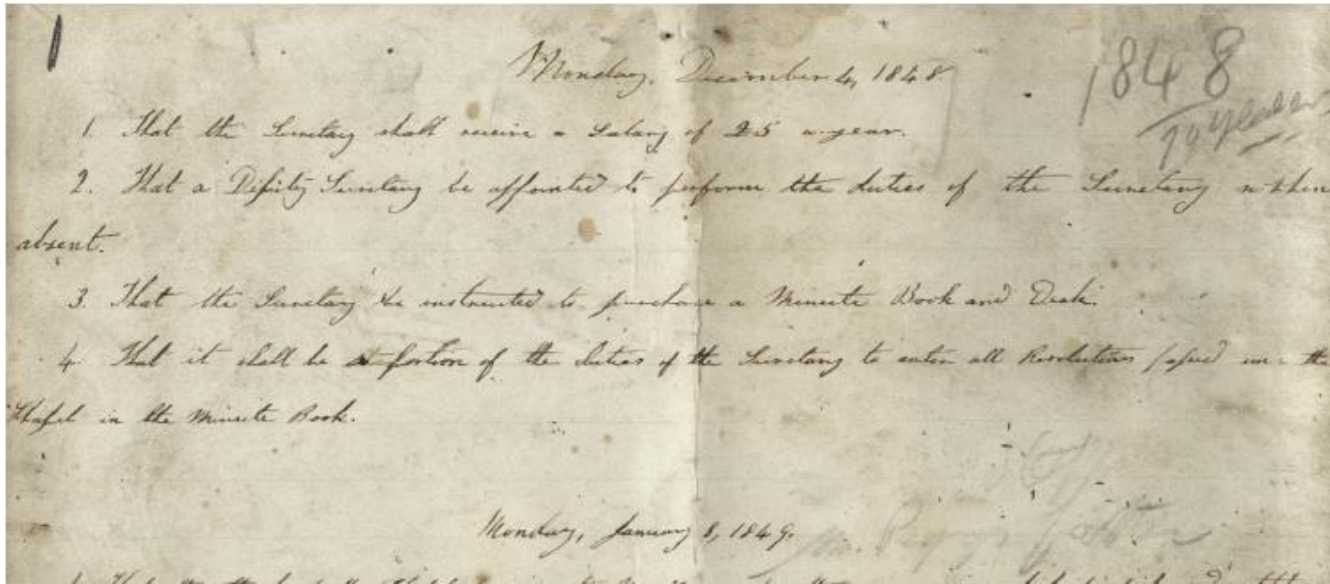 1
1848
Monday, December 4, 1848
1. That the Secretary shall receive a Salary of £5 a-year.
2. That a Deputy Secretary be appointed to perform the duties of the Secretary when
absent.
3. That the Secretary be instructed to purchase a Minute Book and Desk.
4. That it shall be a portion of the duties of the Secretary to enter all Resolutions passed in the
Chapel in the Minute Book.
Monday, January 8, 1849.